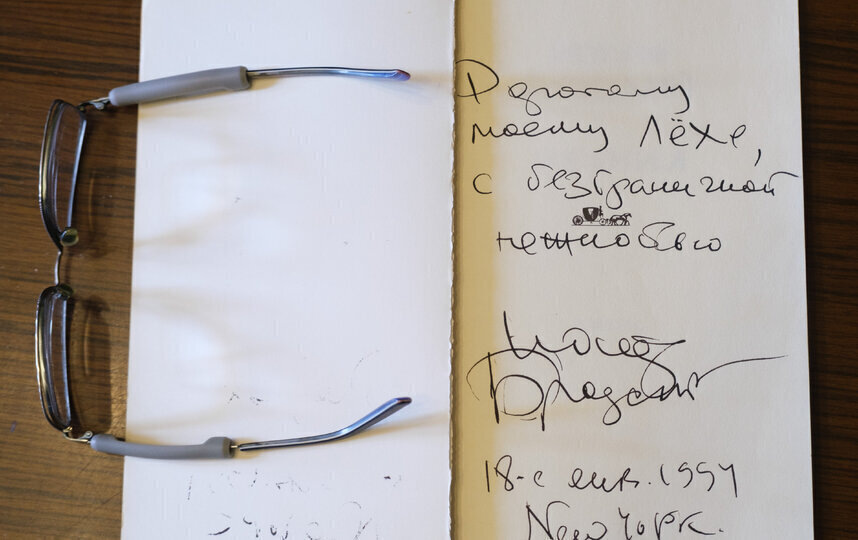 Дорогому
моему Лёхе,
с безграничной
Иосиф
Бродский
18-е янв. 1994
New York.